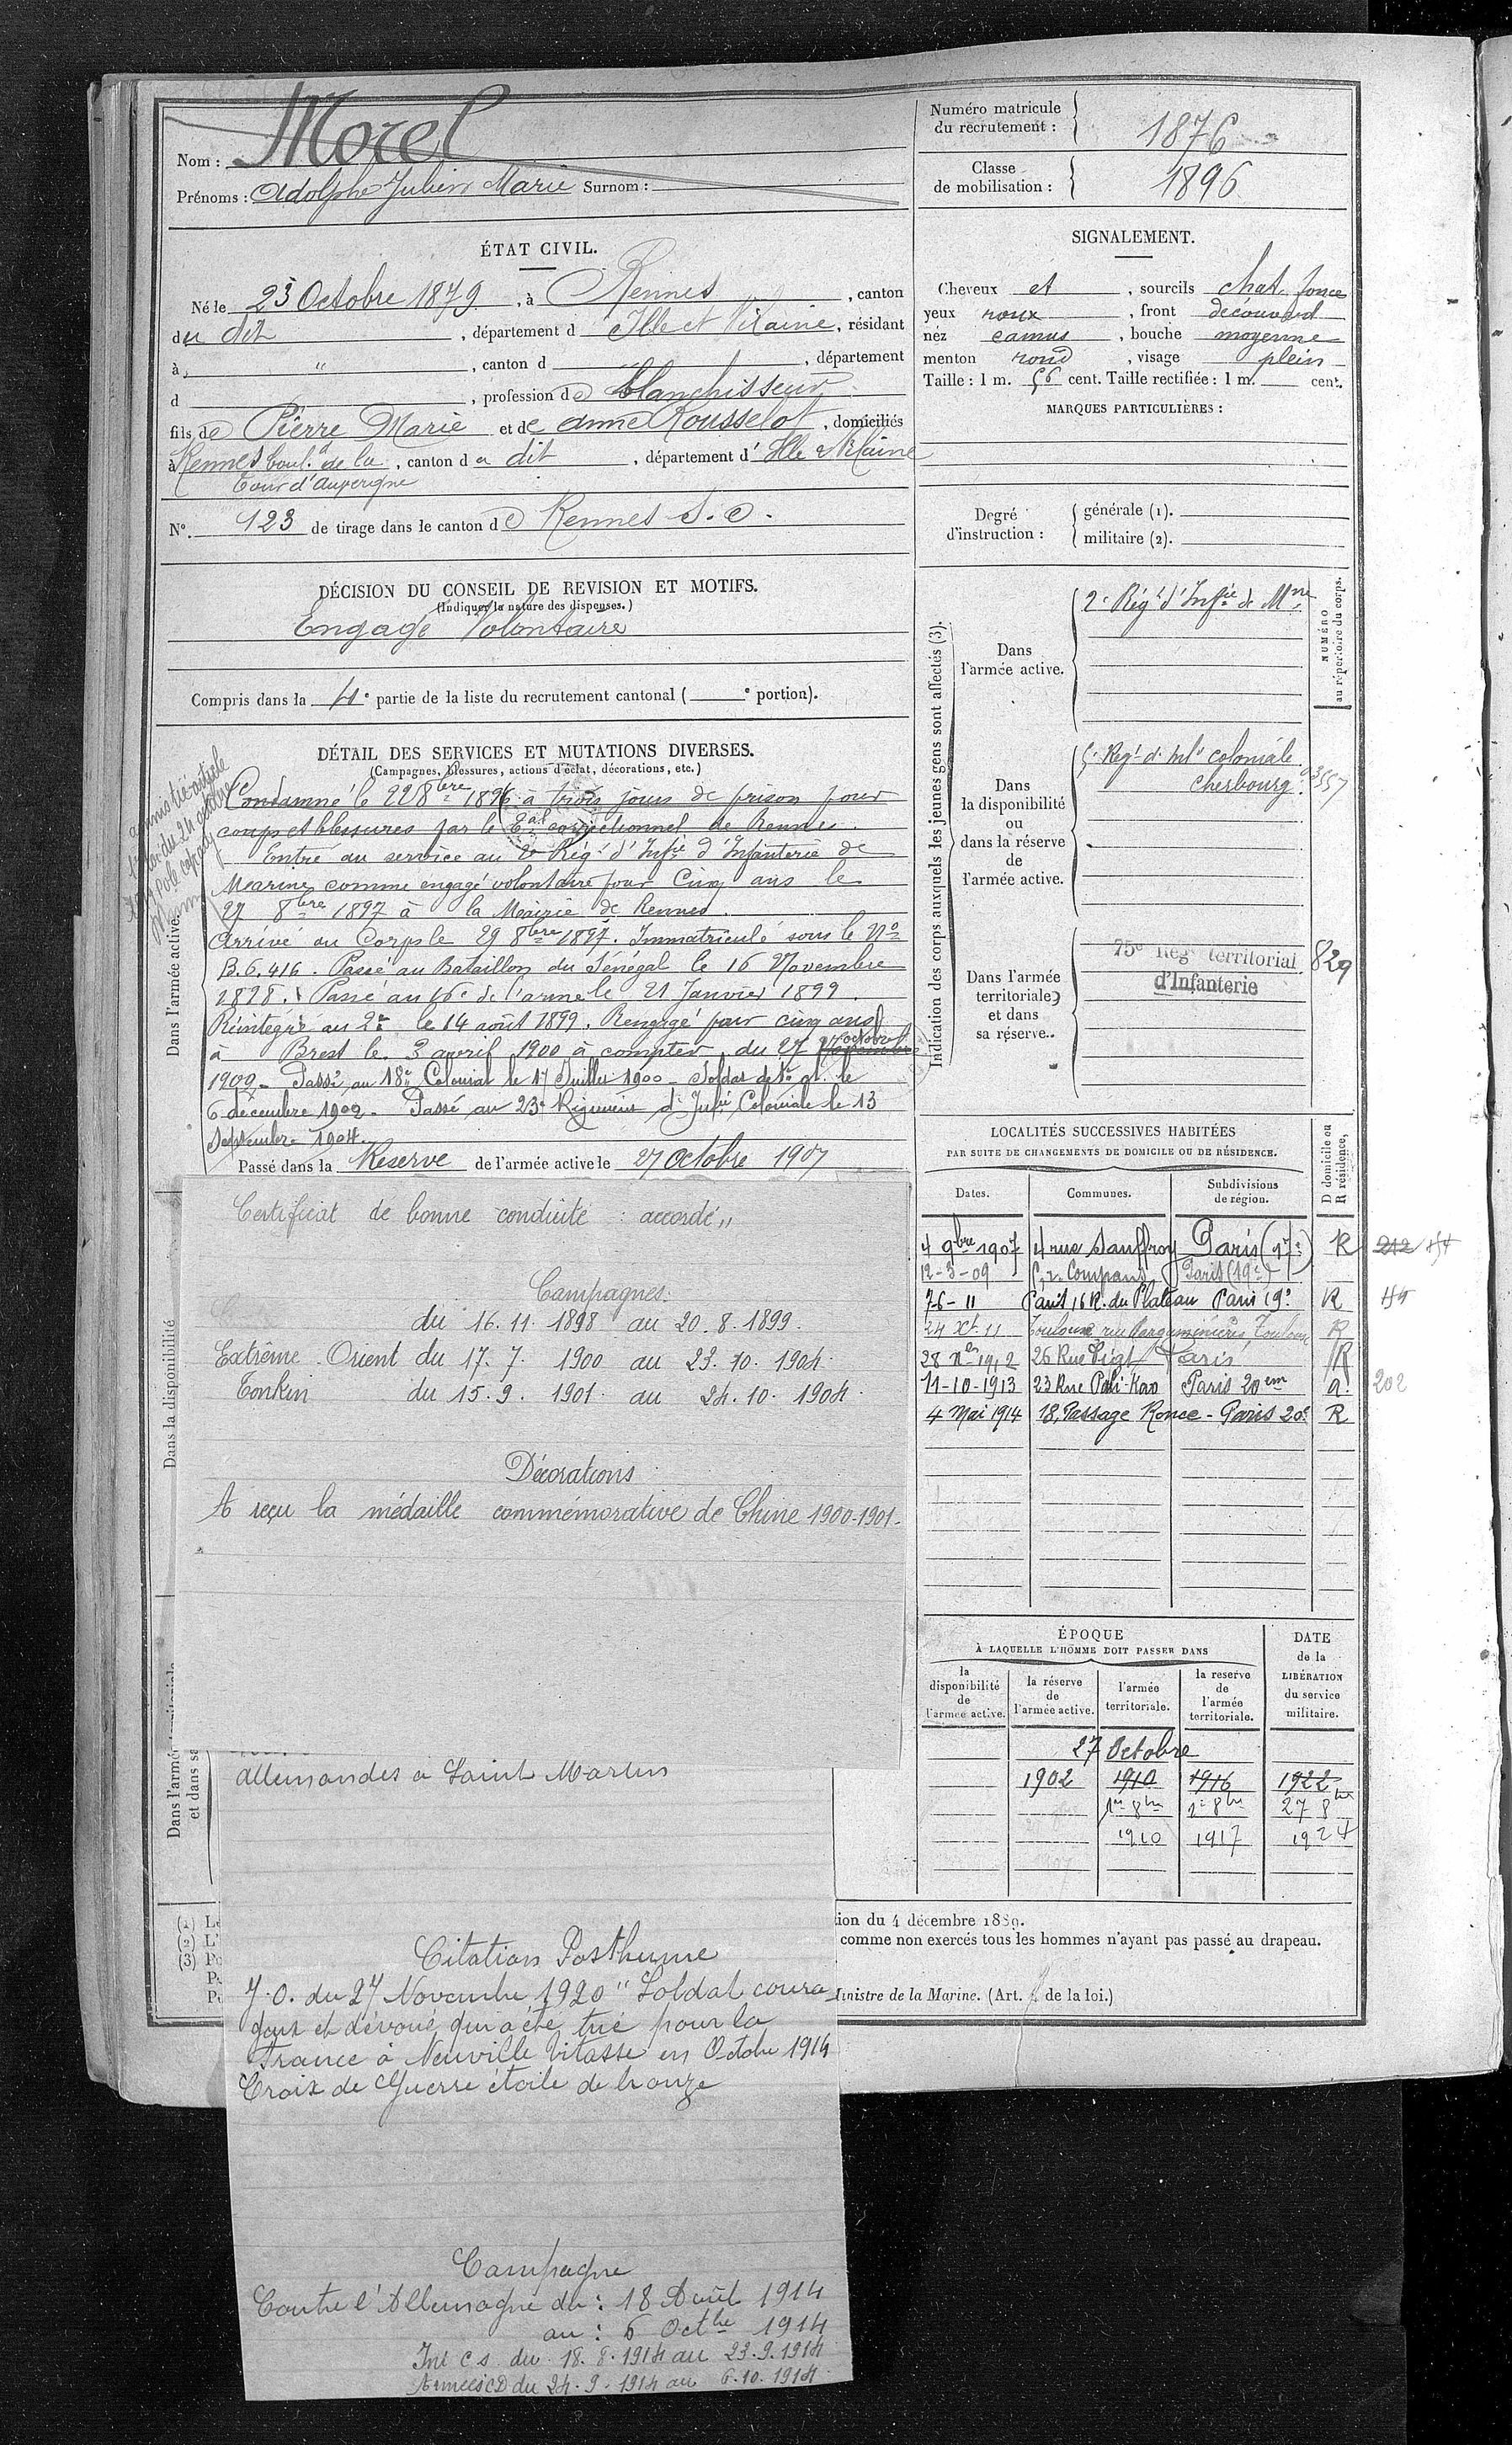 Nom : Morel
Prénoms : Adolphe Julien Marie Surnom :
ÉTAT CIVIL.
Né le 23 Octobre 1879, à Rennes, canton
du dit, département d Ille et Vilaine, résidant
à ", canton d, département
d, profession de blanchisseur
fils de Pierre Marie et de Anne Rousselot, domiciliés
à Rennes boul. de la, canton du dit, département d'Ille & Vilaine
Tour d'Auvergne
N°. 123 de tirage dans le canton de Rennes S.O.
DÉCISION DU CONSEIL DE REVISION ET MOTIFS.
(Indiquer la nature des dispenses.)
Engagé Volontaire
Compris dans la 4e partie de la liste du recrutement cantonal ( e portion).
DÉTAIL DES SERVICES ET MUTATIONS DIVERSES.
(Campagnes, blessures, actions d'éclat, décorations, etc.)
Dans l'armée active.
Condamné le 22 8bre 1896 à trois jours de prison pour
coups et blessures par le Tal correctionnel de Rennes.
Entré au service au 2e Régt d'Infie d'Infanterie de
Marine comme engagé volontaire pour Cinq ans le
27 8bre 1897 à la Mairie de Rennes.
Arrivé au Corps le 29 8bre 1897. Immatriculé sous le No
B.6.416. Passé au Bataillon du Sénégal le 16 Novembre
1898. Passé au 16e de l'arme le 21 Janvier 1899.
Réintégré au 2e le 14 août 1899. Rengagé pour cinq ans
à Brest le 3 avril 1900 à compter du 27 octobre
1902. Passé au 18e Colonial le 17 Juillet 1900 - Soldat de 1e cl. le
6 décembre 1902. Passé au 23e Régiment d'Infie Coloniale le 13
Septembre 1904.
Passé dans la Réserve de l'armée active le 27 Octobre 1907
Dans la disponibilité
Certificat de bonne conduite : accordé"
Campagnes:
du 16.11.1898 au 20.8.1899.
Extrême Orient du 17.7.1900 au 23.10.1904.
Tonkin du 15.9.1901 au 24.10.1904.
Décorations
A reçu la médaille commémorative de Chine 1900-1901-
Dans l'armée
et dans sa
allemandes a Saint Martin
Citation Posthume
J.O. du 27 Novembre 1920 "Soldat coura
geux et dévoué qui a été tué pour la
France à Neuville Vitasse en Octobre 1914
Croix de Guerre étoile de bronze
Campagne
Contre l'Allemagne du : 18 Août 1914
au : 6 Octbre 1914
Int C S du 18.8.1914 au 23.9.1914
Armées CD du 24.9.1914 au 6.10.1914
Numéro matricule
du recrutement : 1876
Classe
de mobilisation : 1896
SIGNALEMENT.
Cheveux et, sourcils chat. foncé
yeux roux, front découvert
nez camus, bouche moyenne
menton rond, visage plein
Taille : 1 m. 56 cent. Taille rectifiée : 1 m. cent.
MARQUES PARTICULIÈRES :
Degré
d'instruction :
générale (1).
militaire (2).
Indication des corps auxquels les jeunes gens sont affectés (3).
NUMÉRO
au répertoire du corps.
Dans
l'armée active.
2e Régt d'Infie de Mne
Dans
la disponibilité
ou
dans la réserve
de
l'armée active.
5e Régt d'Infie coloniale
Cherbourg. 03557
Dans l'armée
territoriale
et dans
sa réserve..
75e Régt territorial
d'Infanterie
829
LOCALITÉS SUCCESSIVES HABITÉES
PAR SUITE DE CHANGEMENTS DE DOMICILE OU DE RÉSIDENCE.
D domicile ou
R résidence,
Dates. Communes. Subdivisions
de région.
4 9bre 1907 4 rue Sauffroy Paris (17e) R 212
12-3-09 r. Compans Paris (19e)
7-6-11 Paris 16 R. du Plateau Paris 19e R
24 Xt 11 Toulouse rue Pargaminières Toulouse R
28 1912 26 Rue Piat Paris R
11-10-1913 23 Rue Pali-Kao Paris 20em 202
4 Mai 1914 18, Passage Ronce - Paris 20e R
ÉPOQUE
À LAQUELLE L'HOMME DOIT PASSER DANS
DATE
de la
LIBÉRATION
du service
militaire.
la
disponibilité
de
l'armée active.
la réserve
de
l'armée active.
l'armée
territoriale.
la reserve
de
l'armée
territoriale.
27 Octobre
1902 1910 1916 1922
1er 8bre 1er 8bre 27 8bre
1910 1917 1924
(1) Le
(2) L'
(3) Po
ion du 4 décembre 1889.
comme non exercés tous les hommes n'ayant pas passé au drapeau.
Ministre de la Marine. (Art. de la loi.)